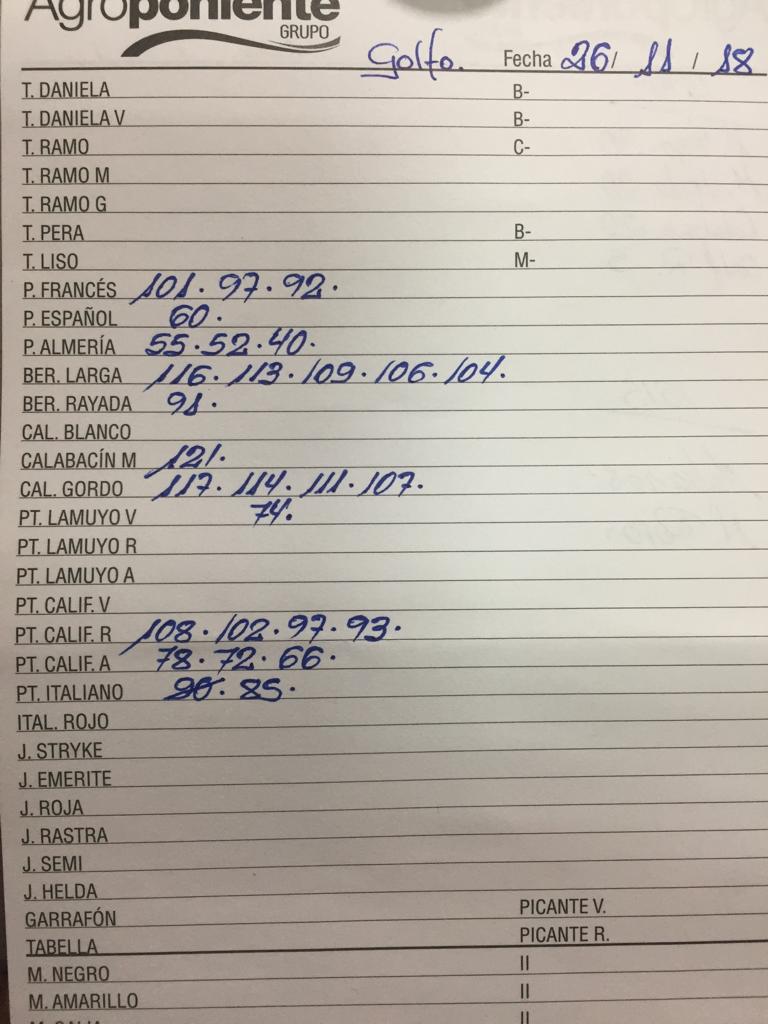 Agroponiente
GRUPO
Golfo. Fecha 26/ 11 / 18
T. DANIELA B-
T. DANIELA V B-
T. RAMO C-
T. RAMO M
T. RAMO G
T. PERA B-
T. LISO M-
P. FRANCÉS 101. 97. 92.
P. ESPAÑOL 60.
P. ALMERÍA 55. 52. 40.
BER. LARGA 116. 113. 109. 106. 104.
BER. RAYADA 91.
CAL. BLANCO
CALABACÍN M 121.
CAL. GORDO 117. 114. 111. 107.
PT. LAMUYO V 74.
PT. LAMUYO R
PT. LAMUYO A
PT. CALIF. V
PT. CALIF. R 108. 102. 97. 93.
PT. CALIF. A 78. 72. 66.
PT. ITALIANO 85.
ITAL. ROJO
J. STRYKE
J. EMERITE
J. ROJA
J. RASTRA
J. SEMI
J. HELDA
GARRAFÓN PICANTE V.
TABELLA PICANTE R.
M. NEGRO II
M. AMARILLO II
II